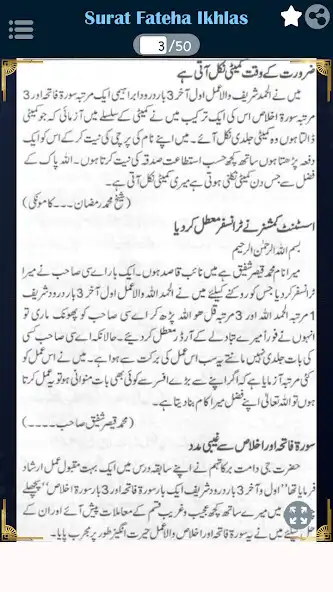 Surat Fateha Ikhlas
3 /50
ضرورت کے وقت کمیٹی نکل آتی ہے
میں نے الحمد شریف والا عمل اول آخر 3 بار درود ابراہیمی ایک مرتبہ سورۃ فاتحہ اور 3
مرتبہ سورۃ اخلاص اس کی ایک ترکیب میں نے کمیٹی کے سلسلے میں آزمائی کہ جو کمیٹی
ڈالتا ہوں وہ کمیٹی جلدی نکل آئے۔ میں اپنے نام کی پرچی کی نیت کر کے اس کو ایک
دفعہ پڑھتا ہوں ساتھ کچھ حسب استطاعت صدقہ کی نیت کرتا ہوں۔ اللہ پاک کے
فضل سے جس دن کمیٹی نکلنی ہوتی ہے میری کمیٹی نکل آتی ہے۔
(شیخ محمد رمضان۔۔۔کامونکی)
اسسٹنٹ کمشنر نے ٹرانسفر معطل کر دیا
بسم اللہ الرحمٰن الرحیم
میرا نام محمد قیصر شفیق ہے میں نائب قاصد ہوں۔ ایک بار اے سی صاحب نے میرا
ٹرانسفر کر دیا جس کو روکنے کیلئے میں نے الحمد للہ والا عمل اول آخر 3 بار درود شریف
1 مرتبہ الحمد اللہ اور 3 مرتبہ قل ھو اللہ پڑھ کر اے سی صاحب کو پھونک ماری تو
انہوں نے فوراً میرے تبادلے کے آرڈر معطل کر دیئے۔ حالانکہ اے سی صاحب کسی
کی بات جلدی نہیں مانتے یہ سب اس عمل کی برکت سے ہوا ہے۔ میں نے اس عمل کو
کئی مرتبہ آزمایا ہے کہ اگر اپنے سے بڑے افسر سے کوئی بھی بات منوانی ہو تو یہ عمل کرتا
ہوں تو اللہ تعالی اپنے فضل میرا کام بنا دیتا ہے۔
(محمد قیصر شفیق صاحب۔۔۔۔)
سورۃ فاتحہ اور اخلاص سے غیبی مدد
حضرت جی دامت برکاتہم نے اپنے سابقہ درس میں ایک بہت مقبول عمل ارشاد
فرمایا تھا "اول و آخر 3 بار درود شریف ایک بار سورۃ فاتحہ اور 3 بار سورۃ اخلاص" پچھلے
میں میرے ساتھ کچھ عجیب و غریب قسم کے معاملات پیش آئے اور ان کے
کیلئے میں نے یہ سورۃ فاتحہ اور اخلاص والا عمل حیرت انگیز طور پر مجرب پایا۔